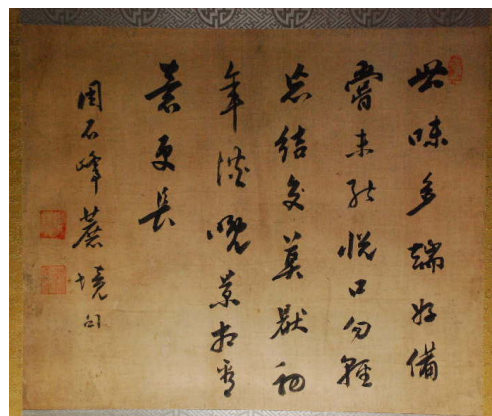 世味多端好備
嘗未能悦口勿輕
忘結交莫厭初
年淡晚景相看
意更長
周石峰蔗境句